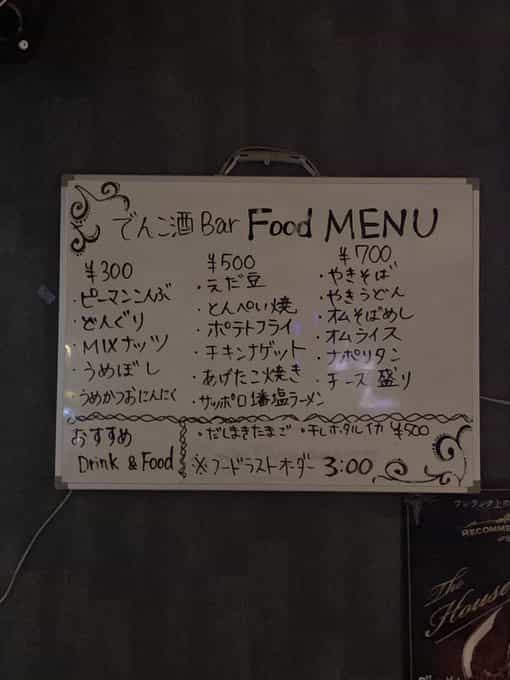 でんこ酒Bar Food MENU
¥300
・ピーマンこんぶ
・どんぐり
・MIXナッツ
・うめぼし
・うめかつおにんにく
¥500
・えだ豆
・とんぺい焼
・ポテトフライ
・チキンナゲット
・あげたこ焼き
・サッポロ1番塩ラーメン
¥700
・やきそば
・やきうどん
・オムそばめし
・オムライス
・ナポリタン
・チーズ盛り
おすすめ
Drink & Food
・だしまきたまご ・干しホタルイカ ¥500
※フードラストオーダー 3:00
RECOMME
The
House